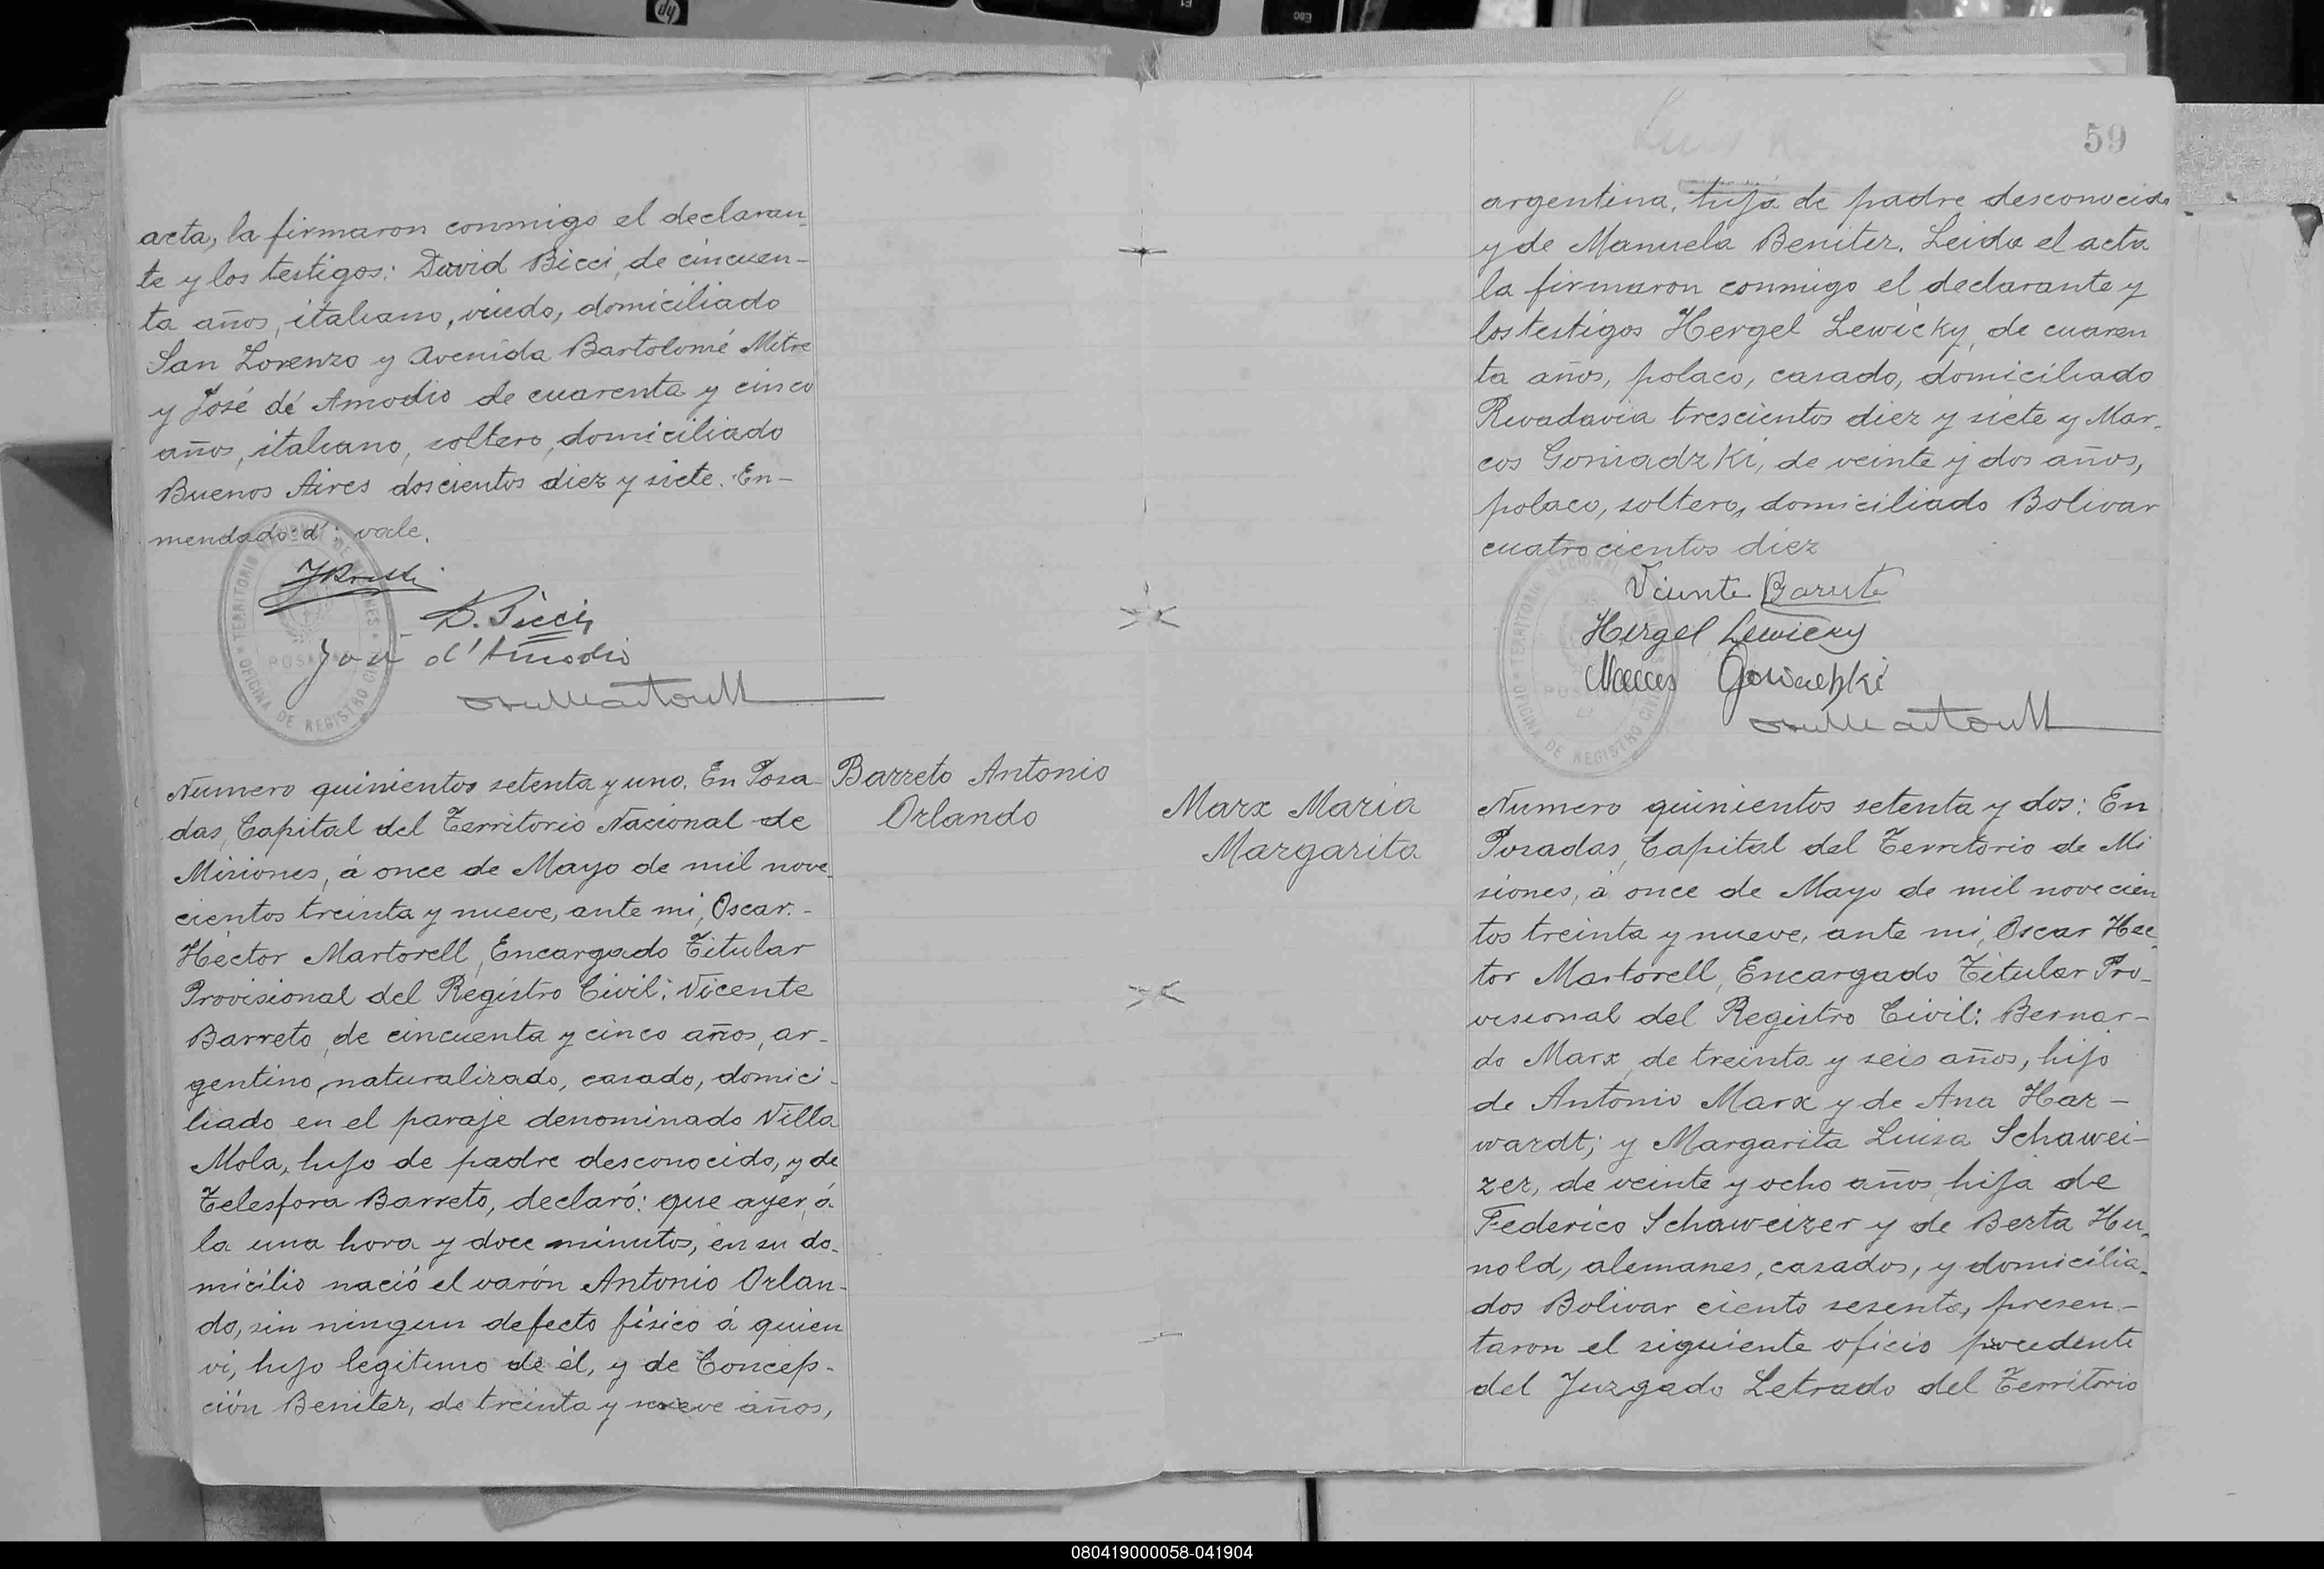 acta, la firmaron conmigo el declaran-
te y los testigos: David Bicci, de cincuen-
ta años, italiano, viudo, domiciliado
San Lorenzo y Avenida Bartolomé Mitre
y José dé Amodio de cuarenta y cinco
años, italiano, soltero, domiciliado
Buenos Aires doscientos diez y siete. En-
mendado: d': vale.
José d'Amodio
TERRITORIO NACIONAL DE MISIONES
POSADAS
OFICINA DE REGISTRO CIVIL
Numero quinientos setenta y uno. En Posa-
das, Capital del Territorio Nacional de
Misiones, á once de Mayo de mil nove-
cientos treinta y nueve, ante mi, Oscar.-
Héctor Martorell, Encargado Titular
Provisional del Registro Civil: Vicente
Barreto, de cincuenta y cinco años, ar-
gentino, naturalizado, casado, domici-
liado en el paraje denominado Villa
Mola, hijo de padre desconocido, y de
Telesfora Barreto, declaró: que ayer, á
la una hora y doce minutos, en su do-
micilio nació el varón Antonio Orlan-
do, sin ningun defecto físico á quien
vi, hijo legitimo de él, y de Concep-
ción Beniter, de treinta y nueve años,
Barreto Antonio
Orlando
59
argentina, hija de padre desconocido
y de Manuela Beniter. Leida el acta
la firmaron conmigo el declarante y
los testigos Hergel Lewicky, de cuaren
ta años, polaco, casado, domiciliado
Rivadavia trescientos diez y siete y Mar-
cos Goniadzki, de veinte y dos años,
polaco, soltero, domiciliado Bolivar
cuatrocientos diez
Vicente Barreto
Hergel Lewicky
TERRITORIO NACIONAL DE MISIONES
POSADAS
OFICINA DE REGISTRO CIVIL
Marx Maria
Margarita
Numero quinientos setenta y dos: En
Posadas, Capital del Territorio de Mi
siones, á once de Mayo de mil novecien
tos treinta y nueve, ante mi, Oscar Hec-
tor Martorell, Encargado Titular Pro-
visional del Registro Civil: Bernar-
do Marx, de treinta y seis años, hijo
de Antonio Marx y de Ana Har-
wardt; y Margarita Luisa Schawei-
zer, de veinte y ocho años, hija de
Federico Schaweizer y de Berta Hu-
nold, alemanes, casados, y domicilia-
dos Bolivar ciento sesenta, presen-
taron el siguiente oficio procedente
del Juzgado Letrado del Territorio
080419000058-041904